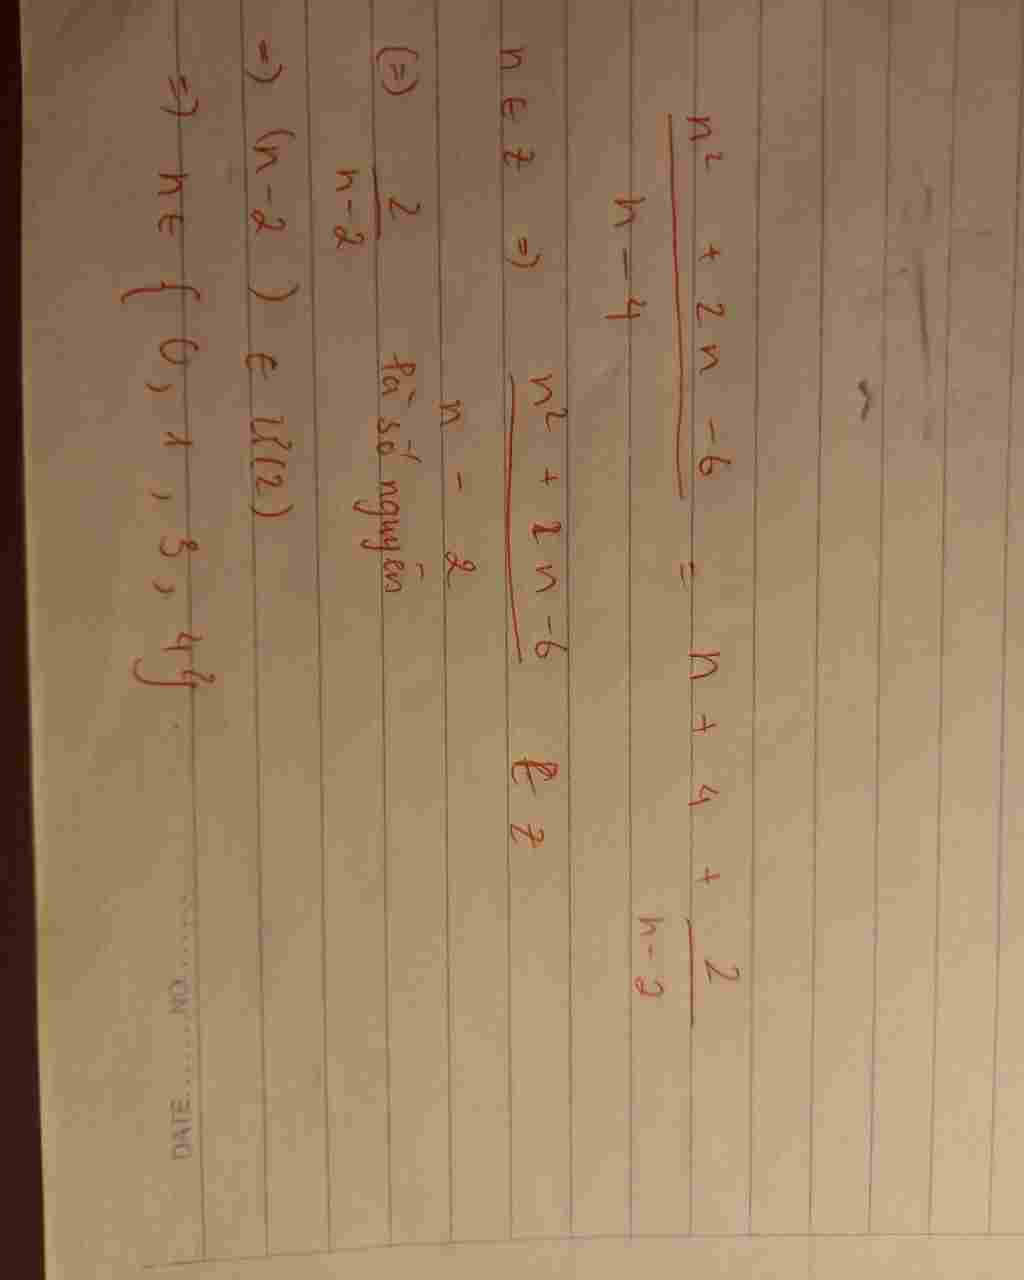 n² + 2n - 6 / n - 4 = n + 4 + 2 / n - 2
n ∈ z => n² + 2n - 6 / n - 2 ∈ z
(=) 2 / n - 2 là số nguyên
=) (n - 2) ∈ Ư(2)
=) n ∈ {0, 1, 3, 4}
DATE......NO......